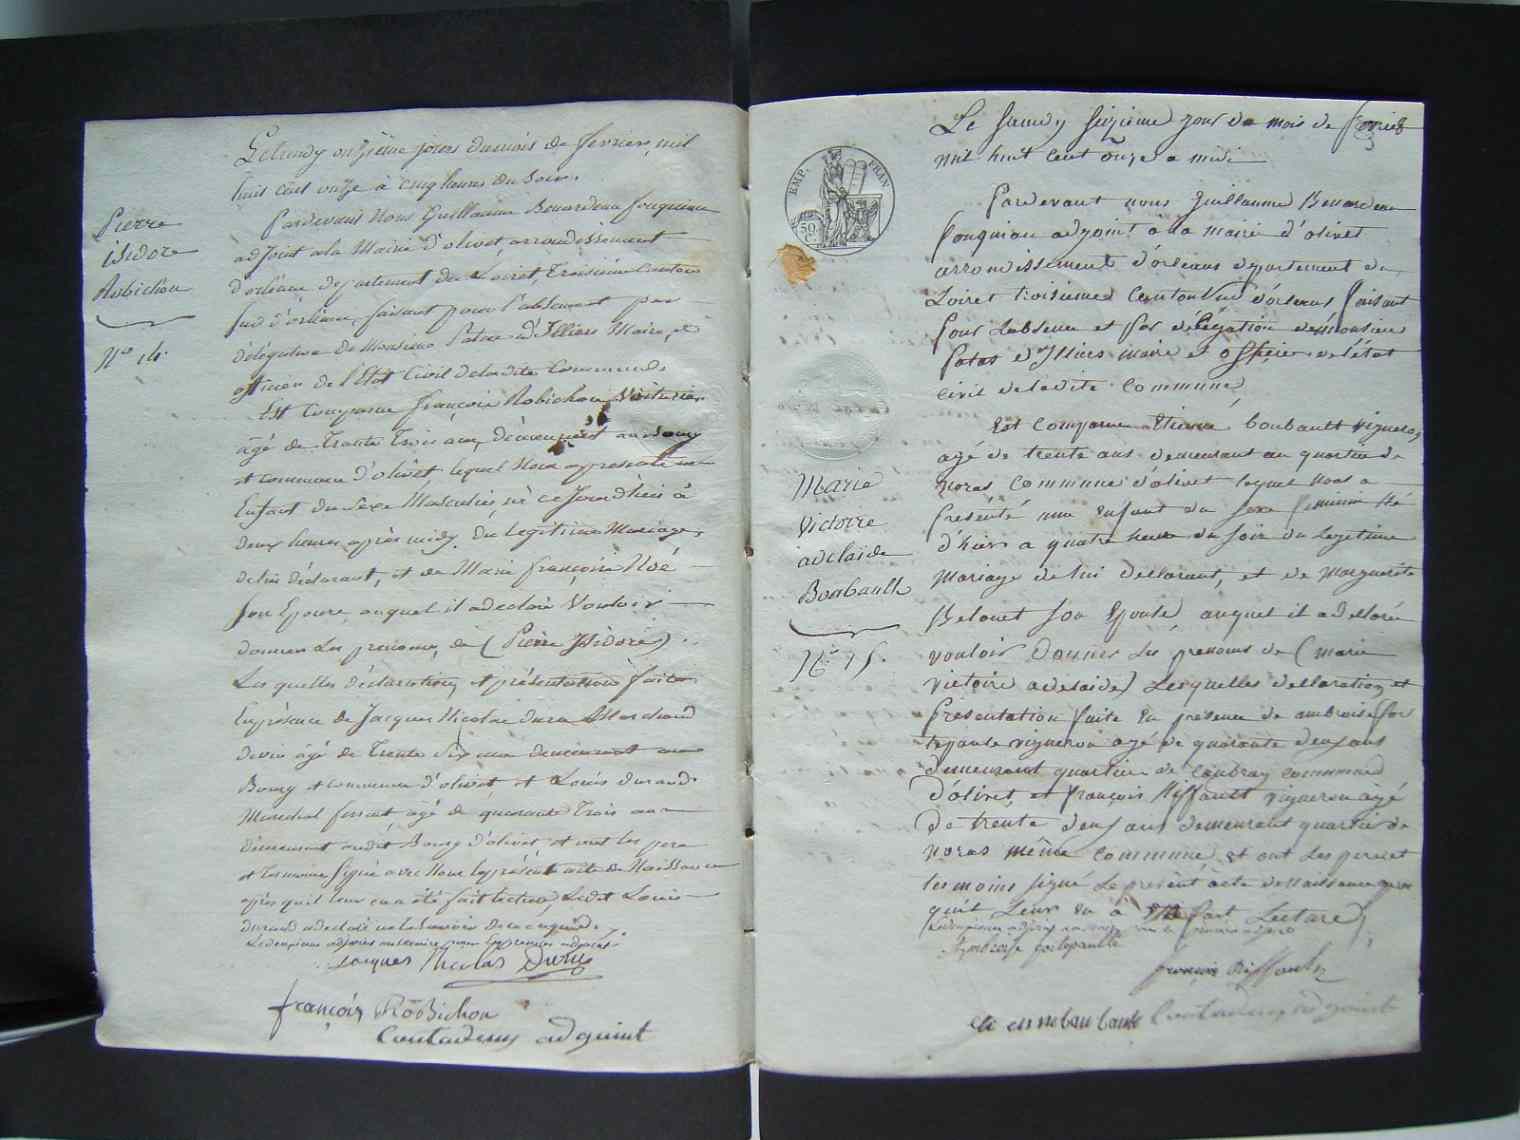 Pierre
isidore
Robichon
N.o 14.
Le lundy onzième jours du mois de fevrier, mil
huit cent onze à cinq heures du soir.
Pardevant nous Guillaume Beuardeau fouqueau
adjoint a la Mairie d'olivet arrondissement
d'orléans departement du Loiret, Troisième Canton
sud d'orléans, faisant pour l'absence et par
délégation de Monsieur Patas d'Illiers Maire, et
officier de l'Etat Civil de ladite Commune
Est Comparu françois Robichon Voiturier
âgé de Trente Trois ans, demeurant au Bourg
et commune d'olivet lequel Nous a presenté un
Enfant du Sexe Masculin, né ce Jourd'huis à
deux heures après midy. du legitime Mariage,
de lui déclarant, et de Marie françoise Noé
son Epouse, auquel il a declaré Vouloir
donner les prenoms, de (Pierre Isidore).
Les quelles déclaration, et présentation faite
En présence de Jacques Nicolas duru Marchand
de vin âgé de Trente Six ans demeurant au
Bourg et commune d'olivet et Louis durand
Marechal ferrant âgé de quarante Trois ans
demeurant audit Bourg d'olivet et ont les pere
et Temoins signé avec Nous le présent acte de Naissance
après qu'il leur en a été fait lecture, Ledit Louis
durand a declaré ne le savoir de ce enquis.
Jacques Nicolas Duru
françois Robichon
adjoint
EMP. FRAN
50
C.
Marie
Victoire
adelaide
Boubault
N.o 15.
Le samedy seizieme jour du mois de fevrier
mil huit cent onze a midi
Pardevant nous Guillaume Beuardeau
fouqueau adjoint à la mairie d'olivet
arrondissement d'orleans departement du
Loiret troisieme Canton sud d'orleans faisant
pour l'absence et par délégation de Monsieur
Patas d'Illiers maire et officier de l'état
civil de ladite commune
Est comparu Etienne boubault vigneron,
agé de trente ans demeurant au quartier de
noras commune d'olivet lequel nous a
présenté une enfant du sexe feminin né
d'hier a quatre heure du soir du legitime
mariage de lui declarant, et de Marguerite
Belouet son Epouse, auquel il a declaré
vouloir donner les prenoms de (marie
victoire adelaide) Lesquelles declaration et
presentation faite en presence de ambroise for
tepaule vigneron agé de quarante deux ans
demeurant quartier de commune
d'olivet et françois Riffault vigneron agé
de trente deux ans demeurant quartier de
noras même commune, et ont les pere et
temoins signé le present acte de naissance apres
quil leur en a été fait lecture,
Ambroise fortepaulle
françois Riffault
adjoint